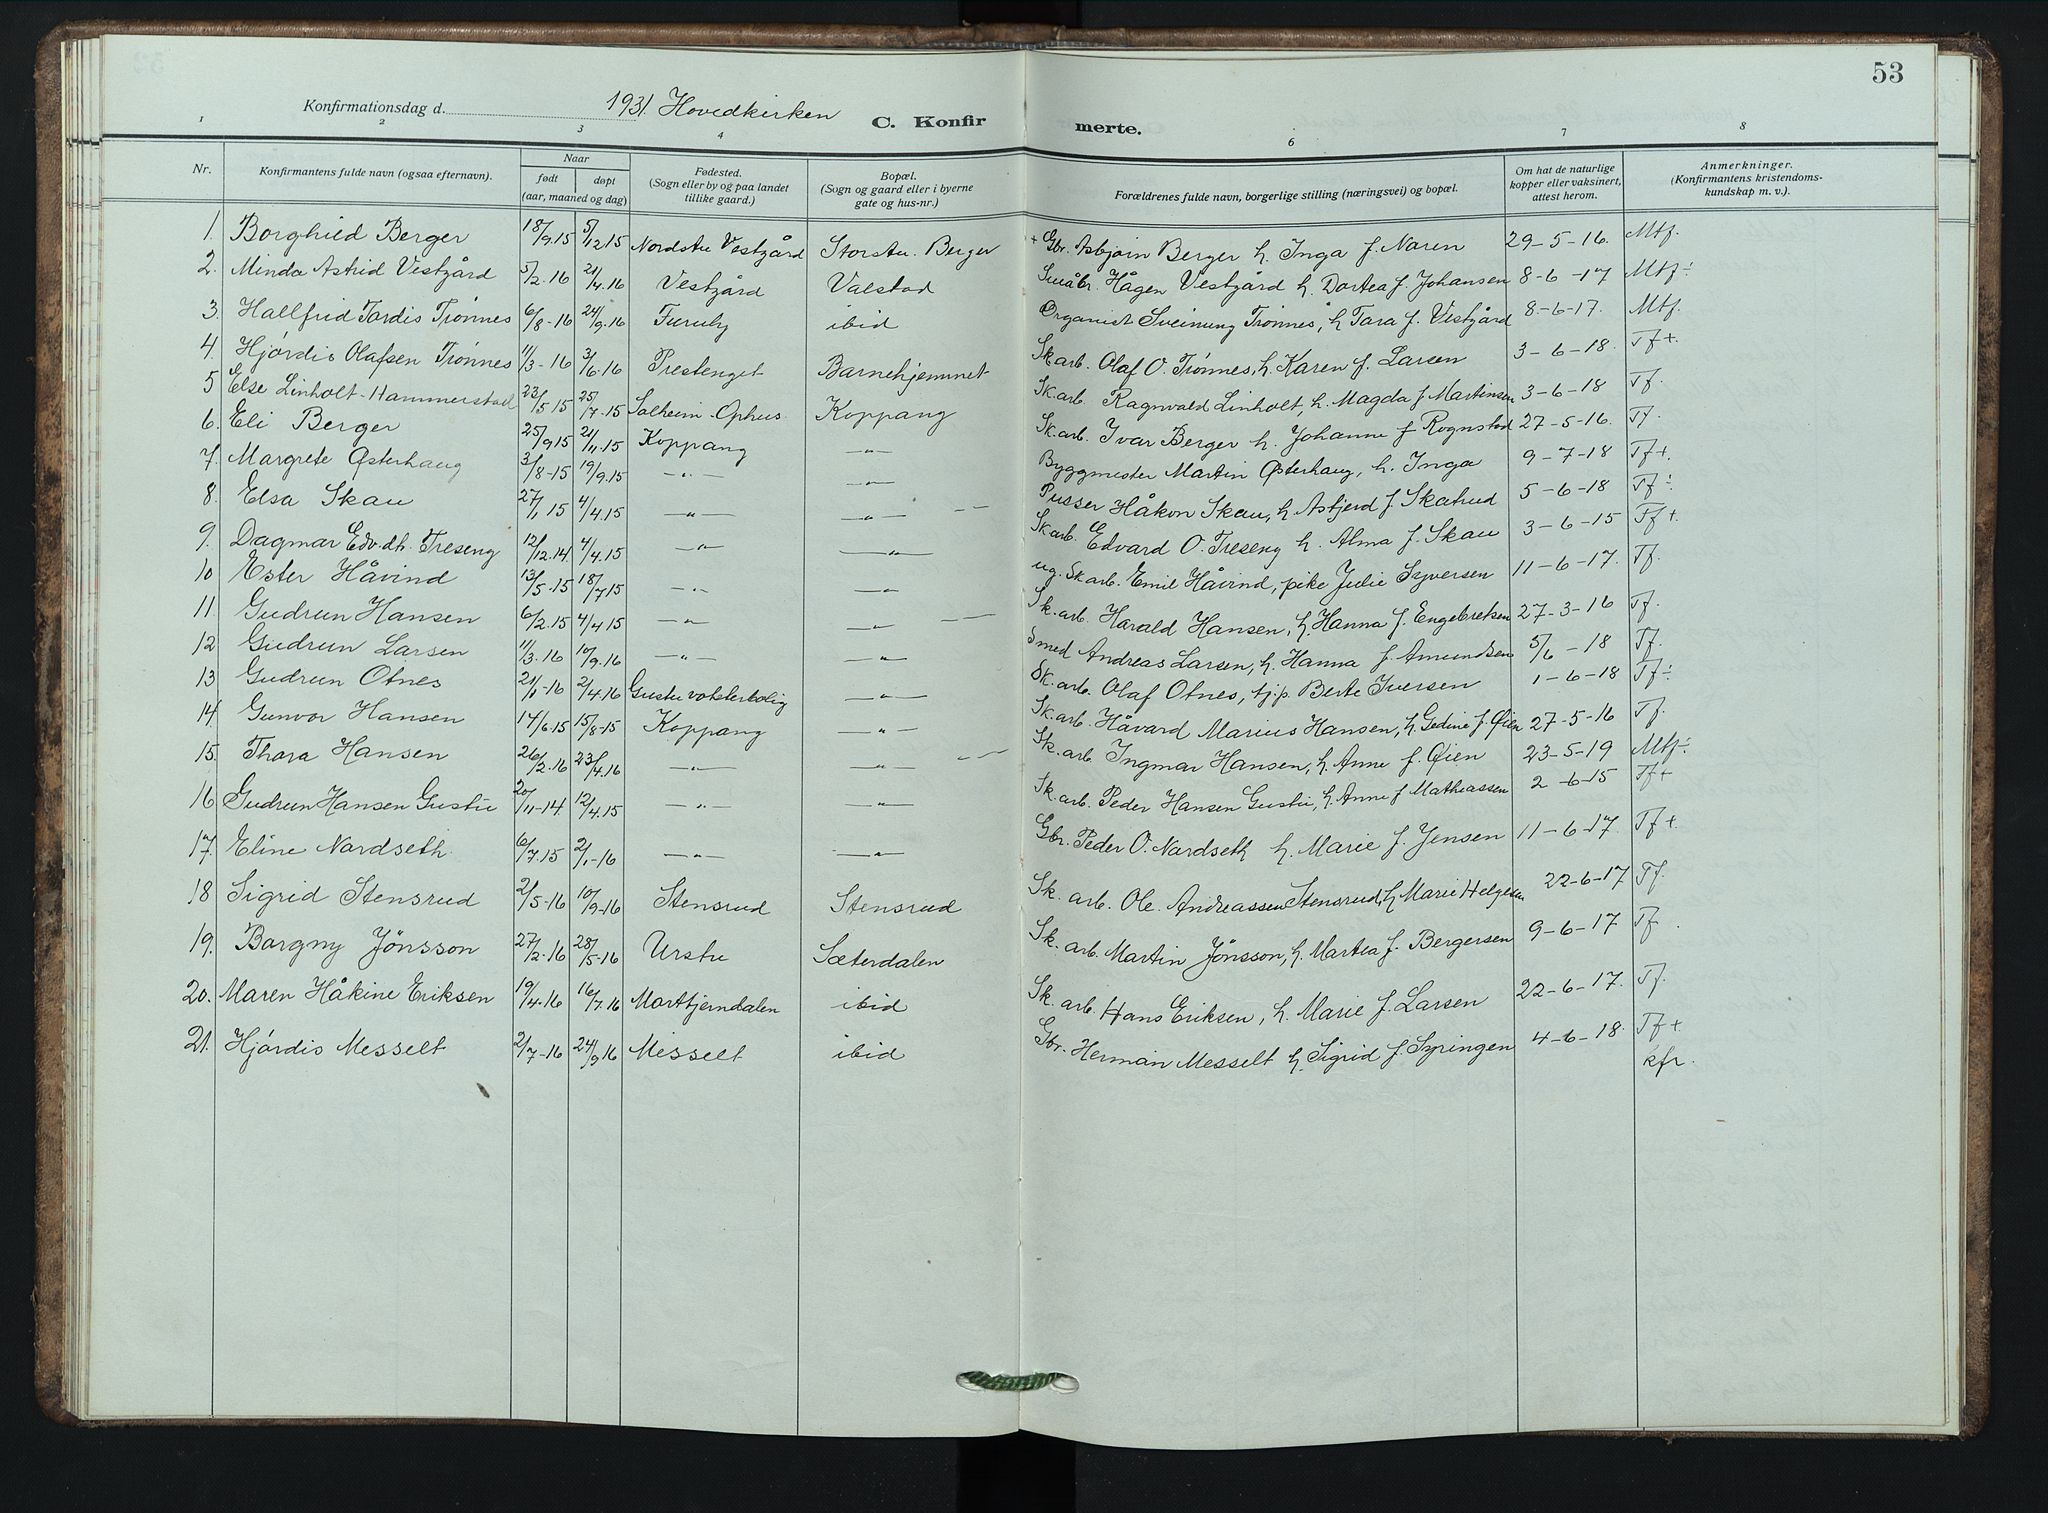 53
Konfirmationsdag d. 1931. Hovedkirken
C. Konfirmerte.
1 2 3 4 5 6 7 8
Nr. Konfirmantens fulde navn (ogsaa efternavn). Naar født døpt (aar, maaned og dag) Fødested. (Sogn eller by og paa landet tillike gaard.) Bopæl. (Sogn og gaard eller i byerne gate og hus-nr.) Forældrenes fulde navn, borgerlige stilling (næringsvei) og bopæl. Om hat de naturlige kopper eller vaksinert, attest herom. Anmerkninger. (Konfirmantens kristendoms-kundskap m. v.).
1. Borghild Berger 18/9.15 5/12 15 Nordstu Vestgård Storstu. Berger + Gbr. Asbjørn Berger h. Inga f. Naren 29-5-16. Mtf.
2. Minda Astrid Vestgård 5/2.16 21/4.16 Vestgård Valstad Småbr. Hågen Vestgård h. Dortea f. Johansen 8-6-17 Mtf÷
3. Hallfrid Tordis Trønnes 6/8-16 24/9.16 Furuly ibid Organist Sveinung Trønnes, h Tara f. Vestgård 8-6-17. Mtf.
4. Hjørdis Olafsen Trønnes 11/3-16 3/6.16 Prestenget Barnehjemmet Sk arb. Olaf O. Trønnes, h. Karen f. Larsen 3-6-18. Tf+.
5 Else Linholt-Hammerstad 23/5 15 25/7-15 Solheim-Ophus Koppang Sk. arb. Ragnvald Linholt, h. Magda f Martinsen 3-6-18 Tf.
6. Eli Berger 25/9 15 21/11.15 Koppang —„— Sk. arb. Ivar Berger h. Johanne f Rognstad 27-5-16. Tf.
7. Margrete Østerhaug 3/8-15 19/9.15 —„— —„— Byggmester Martin Østerhaug, h. Inga 9-7-18 Tf+.
8. Elsa Skau 27/1 15 4/4.15 —„— —„— Pusser Håkon Skau, h Asfjerd f. Skatrud 5-6-18 Tf÷
9. Dagmar Edv.dt. Treseng 12/12.14 4/4.15 —„— —„— Sk arb. Edvard O. Treseng h. Alma f. Skau 3-6-15 Tf+
10 Ester Håvind 13/5.15 18/7 15 —„— —„— ug. Sk arb. Emil Håvind, pike Julie Syversen 11-6-17. Tf.
11. Gudrun Hansen 6/2.15 4/4 15 —„— —„— Sk. arb. Harald Hansen, h. Hanna f. Engebretsen 27-3-16 Tf.
12 Gudrun Larsen 11/3.16 10/9.16 —„— —„— Smed Andreas Larsen, h. Hanna f. Amundsen 5/6-18 Tf.
13 Gudrun Otnes 21/1-16 2/4.16 Gustu vokterbolig —„— Sk. arb. Olaf Otnes, tj.p. Berte Iversen 1-6-18 Tf÷
14 Gunvor Hansen 14/6.15 15/8-15 Koppang —„— Sk. arb. Håvard Marius Hansen, h Gedine f. Øien 27-5-16 Tf.
15. Thora Hansen 26/2.16 23/4.16 —„— —„— Sk. arb. Ingmar Hansen, h. Anne f. Øien 23-5-19 Mtf÷
16 Gudrun Hansen Gustu 20/11-14 12/4.15 —„— —„— Sk. arb. Peder Hansen Gustu, h. Anne f Mathiassen 2-6-15 Tf+
17. Eline Nordseth 6/7.15 2/1-16 —„— —„— Gbr. Peder O. Nordseth h. Marie f. Jensen 11-6-17. Tf+
18 Sigrid Stensrud 2/5-16 10/9-16 Stensrud Stensrud Sk. arb. Ole. Andreassen Stensrud, h Marie Helgesen 22-6-17 Tf.
19. Borgny Jönsson 27/2-16 28/5-16 Urstu Sæterdalen Sk. arb. Martin Jönsson, h. Martea f. Bergersen 9-6-17 Tf.
20. Maren Håkine Eriksen 19/4-16 16/7.16 Mortfjerndalen ibid Sk. arb. Hans Eriksen, h. Marie f. Larsen 22-6-17. Tf.
21. Hjördis Messelt 2/7-16 24/9 16 Messelt ibid Gbr. Herman Messelt h. Sigrid f. Syringen 4-6-18. Tf+
kfr.